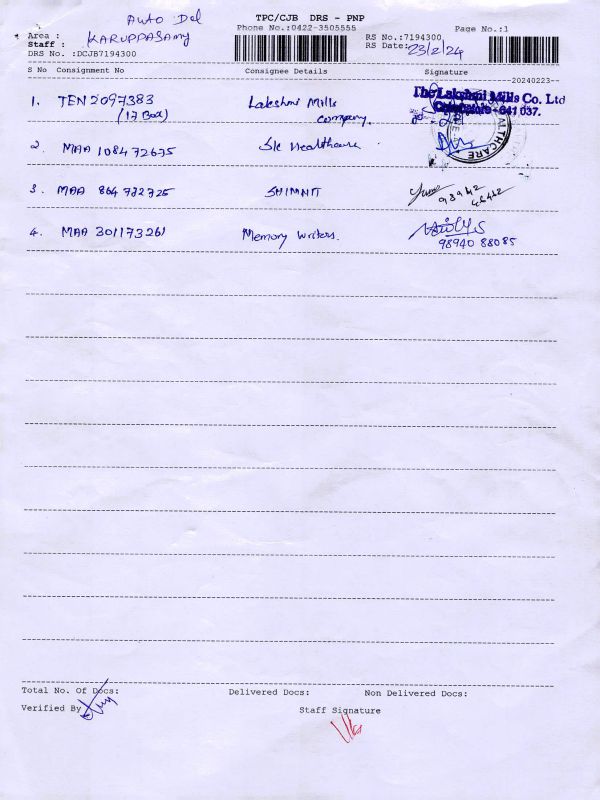 Auto Del
TPC/CJB DRS - PNP
Phone No.:0422-3505555
Page No.:1
Area :
Staff : KARUPPASAMY
RS No.:7194300
RS Date: 23/2/24
DRS No. :DCJB7194300
S No Consignment No Consignee Details Signature
20240223
1. TEN 2097383 Lakshmi Mills
(17 Box) company.
The Lakshmi Mills Co. Ltd
- 641 037.
2. MAA 108472675 Sle Healthcare
HEALTHCARE
3. MAA 864772725 SHIMNIT
98942
4. MAA 301173261 Memory writers.
98940 88085
Total No. Of Docs: Delivered Docs: Non Delivered Docs:
Verified By
Staff Signature